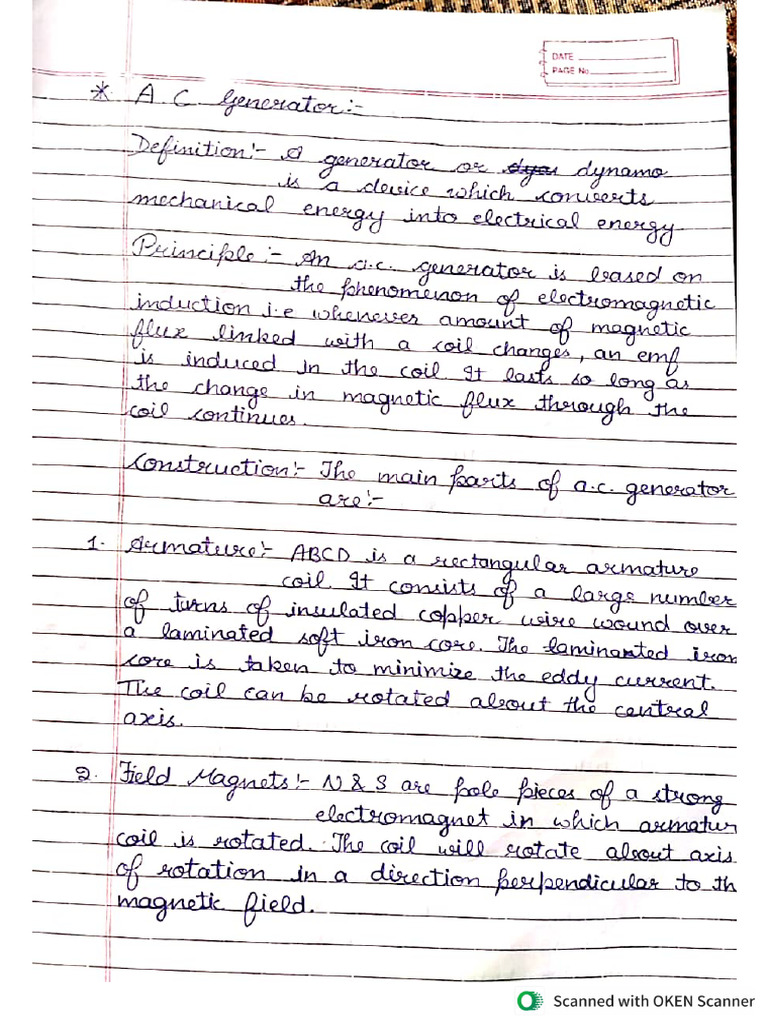 DATE
PAGE No
* A.C Generator:-
Definition:- A generator or dynamo
is a device which converts
mechanical energy into electrical energy
Principle:- An a.c. generator is based on
the phenomenon of electromagnetic
induction i.e whenever amount of magnetic
flux linked with a coil changes, an emf
is induced in the coil It lasts so long as
the change in magnetic flux through the
coil continues.
Construction:- The main parts of a.c. generator
are:-
1. Armature:- ABCD is a rectangular armature
coil. It consists of a large number
of turns of insulated copper wire wound over
a laminated soft iron core. The laminated iron
core is taken to minimize the eddy current.
The coil can be rotated about the central
axis.
2. Field Magnets:- N & S are pole pieces of a strong
electromagnet in which armatur
coil is rotated. The coil will rotate about axis
of rotation in a direction perpendicular to th
magnetic field.
Scanned with OKEN Scanner